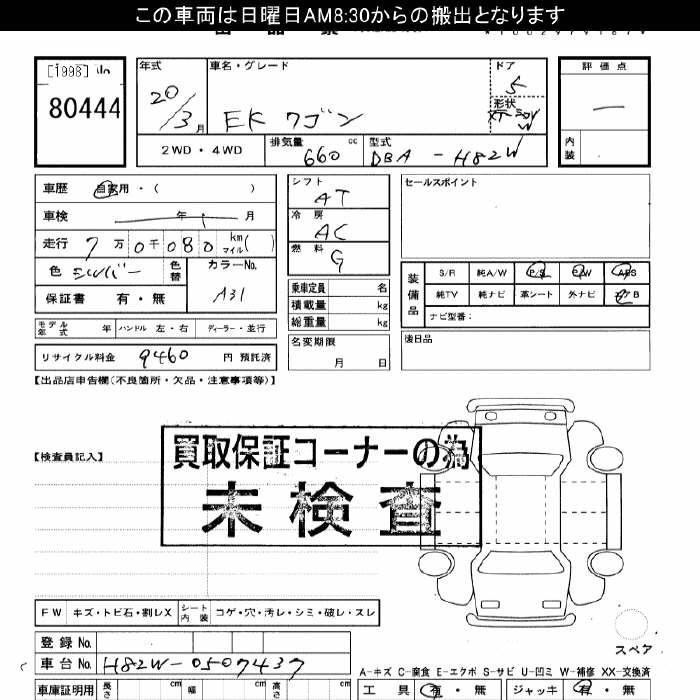 この車両は日曜日AM8:30からの搬出となります
[1998]
80444
年式
20/3月
車名・グレード
EK ワゴン
ドア
5
形状
評価点
内装
2WD・4WD
排気量
660 cc
型式
DBA - H82W
車歴 自家用・( )
車検 年 月
走行 7万0千080 km マイル( )
色 シルバー
色替
カラーNo.
A31
保証書 有・無
モデル年式 年 ハンドル 左・右 ディーラー・並行
リサイクル料金 9460 円 預託済
シフト
AT
冷房
AC
燃料
G
乗車定員 名
積載量 kg
総重量 kg
名変期限
月 日
セールスポイント
装備品
S/R 純A/W P/S P/W ABS
純TV 純ナビ 革シート 外ナビ エアB
ナビ型番:
後日品
【出品店申告欄(不良箇所・欠品・注意事項等)】
【検査員記入】
買取保証コーナーの為
未検査
FW キズ・トビ石・割レX シート内装 コゲ・穴・汚レ・シミ・破レ・スレ
スペア
登録No.
車台No. H82W-0507437
A-キズ C-腐食 E-エクボ S-サビ U-凹ミ W-補修 XX-交換済
車庫証明用 長さ cm 幅 cm cm
工具 有・無 ジャッキ 有・無